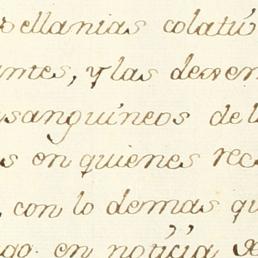 ellanias colatú
antes, y las deven
sanguineos de l
s en quienes rec
, con lo demas qu
go. en notícia de